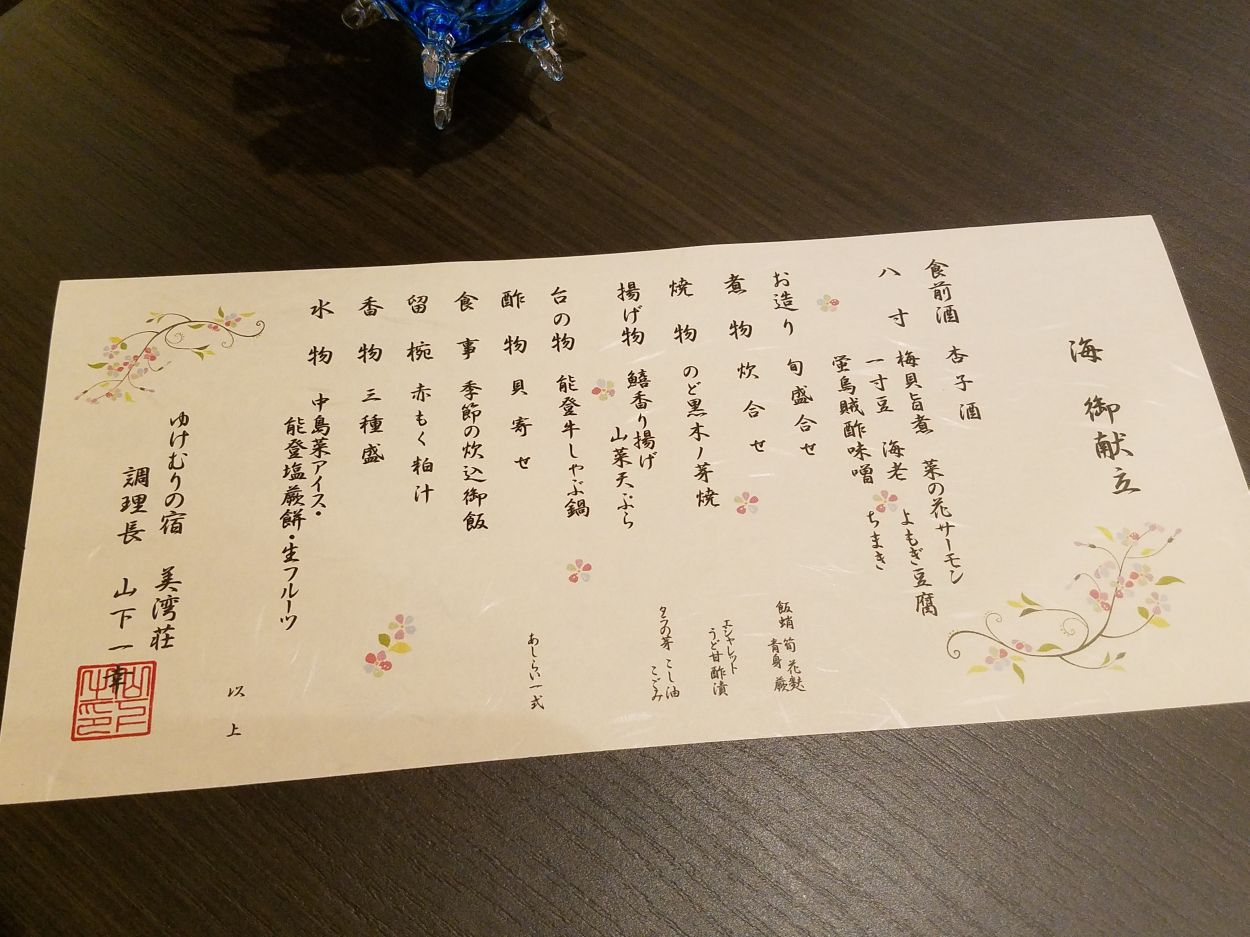 海 御献立
食前酒 杏子酒
八寸 梅貝旨煮 菜の花サーモン
一寸豆 海老 よもぎ豆腐
蛍烏賊酢味噌 ちまき
お造り 旬盛合せ
煮物 炊合せ 飯蛸 筍 花麩
青身 蕨
焼物 のど黒木ノ芽焼 エシャレット
うど甘酢漬
揚げ物 鱚香り揚げ
山菜天ぷら タラの芽 こし油
こごみ
台の物 能登牛しゃぶ鍋 あしらい一式
酢物 貝寄せ
食事 季節の炊込御飯
留椀 赤もく粕汁
香物 三種盛
水物 中島菜アイス・
能登塩蕨餅・生フルーツ
以上
ゆけむりの宿 美湾荘
調理長 山下一幸